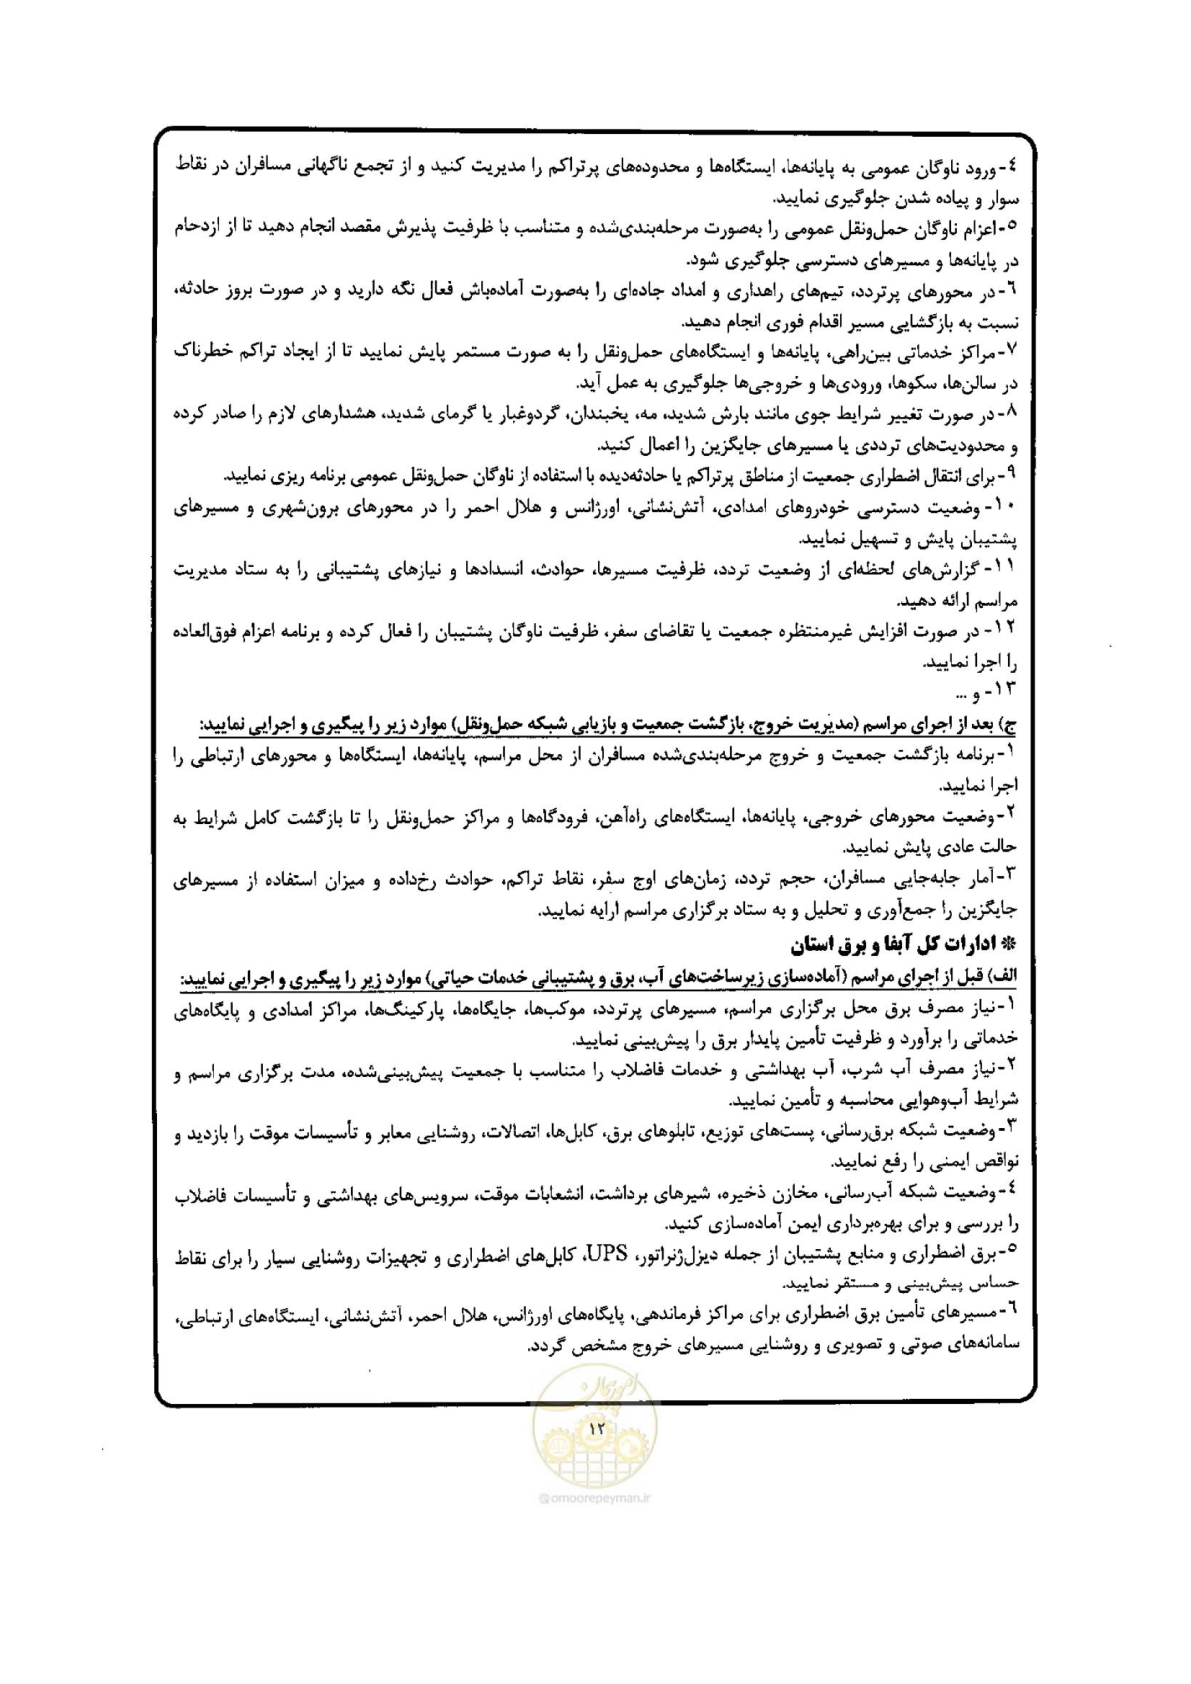 ۴-ورود ناوگان عمومی به پایانه‌ها، ایستگاه‌ها و محدوده‌های پرتراکم را مدیریت کنید و از تجمع ناگهانی مسافران در نقاط
سوار و پیاده شدن جلوگیری نمایید.
۵-اعزام ناوگان حمل‌ونقل عمومی را به‌صورت مرحله‌بندی‌شده و متناسب با ظرفیت پذیرش مقصد انجام دهید تا از ازدحام
در پایانه‌ها و مسیرهای دسترسی جلوگیری شود.
۶-در محورهای پرتردد، تیم‌های راهداری و امداد جاده‌ای را به‌صورت آماده‌باش فعال نگه دارید و در صورت بروز حادثه،
نسبت به بازگشایی مسیر اقدام فوری انجام دهید.
۷-مراکز خدماتی بین‌راهی، پایانه‌ها و ایستگاه‌های حمل‌ونقل را به صورت مستمر پایش نمایید تا از ایجاد تراکم خطرناک
در سالن‌ها، سکوها، ورودی‌ها و خروجی‌ها جلوگیری به عمل آید.
۸-در صورت تغییر شرایط جوی مانند بارش شدید، مه، یخبندان، گردوغبار یا گرمای شدید، هشدارهای لازم را صادر کرده
و محدودیت‌های ترددی یا مسیرهای جایگزین را اعمال کنید.
۹-برای انتقال اضطراری جمعیت از مناطق پرتراکم یا حادثه‌دیده با استفاده از ناوگان حمل‌ونقل عمومی برنامه ریزی نمایید.
۱۰- وضعیت دسترسی خودروهای امدادی، آتش‌نشانی، اورژانس و هلال احمر را در محورهای برون‌شهری و مسیرهای
پشتیبان پایش و تسهیل نمایید.
۱۱- گزارش‌های لحظه‌ای از وضعیت تردد، ظرفیت مسیرها، حوادث، انسدادها و نیازهای پشتیبانی را به ستاد مدیریت
مراسم ارائه دهید.
۱۲- در صورت افزایش غیرمنتظره جمعیت یا تقاضای سفر، ظرفیت ناوگان پشتیبان را فعال کرده و برنامه اعزام فوق‌العاده
را اجرا نمایید.
۱۳- و ...
ج) بعد از اجرای مراسم (مدیریت خروج، بازگشت جمعیت و بازیابی شبکه حمل‌ونقل) موارد زیر را پیگیری و اجرایی نمایید:
۱-برنامه بازگشت جمعیت و خروج مرحله‌بندی‌شده مسافران از محل مراسم، پایانه‌ها، ایستگاه‌ها و محورهای ارتباطی را
اجرا نمایید.
۲-وضعیت محورهای خروجی، پایانه‌ها، ایستگاه‌های راه‌آهن، فرودگاه‌ها و مراکز حمل‌ونقل را تا بازگشت کامل شرایط به
حالت عادی پایش نمایید.
۳-آمار جابه‌جایی مسافران، حجم تردد، زمان‌های اوج سفر، نقاط تراکم، حوادث رخ‌داده و میزان استفاده از مسیرهای
جایگزین را جمع‌آوری و تحلیل و به ستاد برگزاری مراسم ارایه نمایید.
* ادارات کل آبفا و برق استان
الف) قبل از اجرای مراسم (آماده‌سازی زیرساخت‌های آب، برق و پشتیبانی خدمات حیاتی) موارد زیر را پیگیری و اجرایی نمایید:
۱-نیاز مصرف برق محل برگزاری مراسم، مسیرهای پرتردد، موکب‌ها، جایگاه‌ها، پارکینگ‌ها، مراکز امدادی و پایگاه‌های
خدماتی را برآورد و ظرفیت تأمین پایدار برق را پیش‌بینی نمایید.
۲-نیاز مصرف آب شرب، آب بهداشتی و خدمات فاضلاب را متناسب با جمعیت پیش‌بینی‌شده، مدت برگزاری مراسم و
شرایط آب‌وهوایی محاسبه و تأمین نمایید.
۳-وضعیت شبکه برق‌رسانی، پست‌های توزیع، تابلوهای برق، کابل‌ها، اتصالات، روشنایی معابر و تأسیسات موقت را بازدید و
نواقص ایمنی را رفع نمایید.
۴-وضعیت شبکه آب‌رسانی، مخازن ذخیره، شیرهای برداشت، انشعابات موقت، سرویس‌های بهداشتی و تأسیسات فاضلاب
را بررسی و برای بهره‌برداری ایمن آماده‌سازی کنید.
۵-برق اضطراری و منابع پشتیبان از جمله دیزل‌ژنراتور، UPS، کابل‌های اضطراری و تجهیزات روشنایی سیار را برای نقاط
حساس پیش‌بینی و مستقر نمایید.
۶-مسیرهای تأمین برق اضطراری برای مراکز فرماندهی، پایگاه‌های اورژانس، هلال احمر، آتش‌نشانی، ایستگاه‌های ارتباطی،
سامانه‌های صوتی و تصویری و روشنایی مسیرهای خروج مشخص گردد.
امور پیمان
۱۲
@omoorepeyman.ir